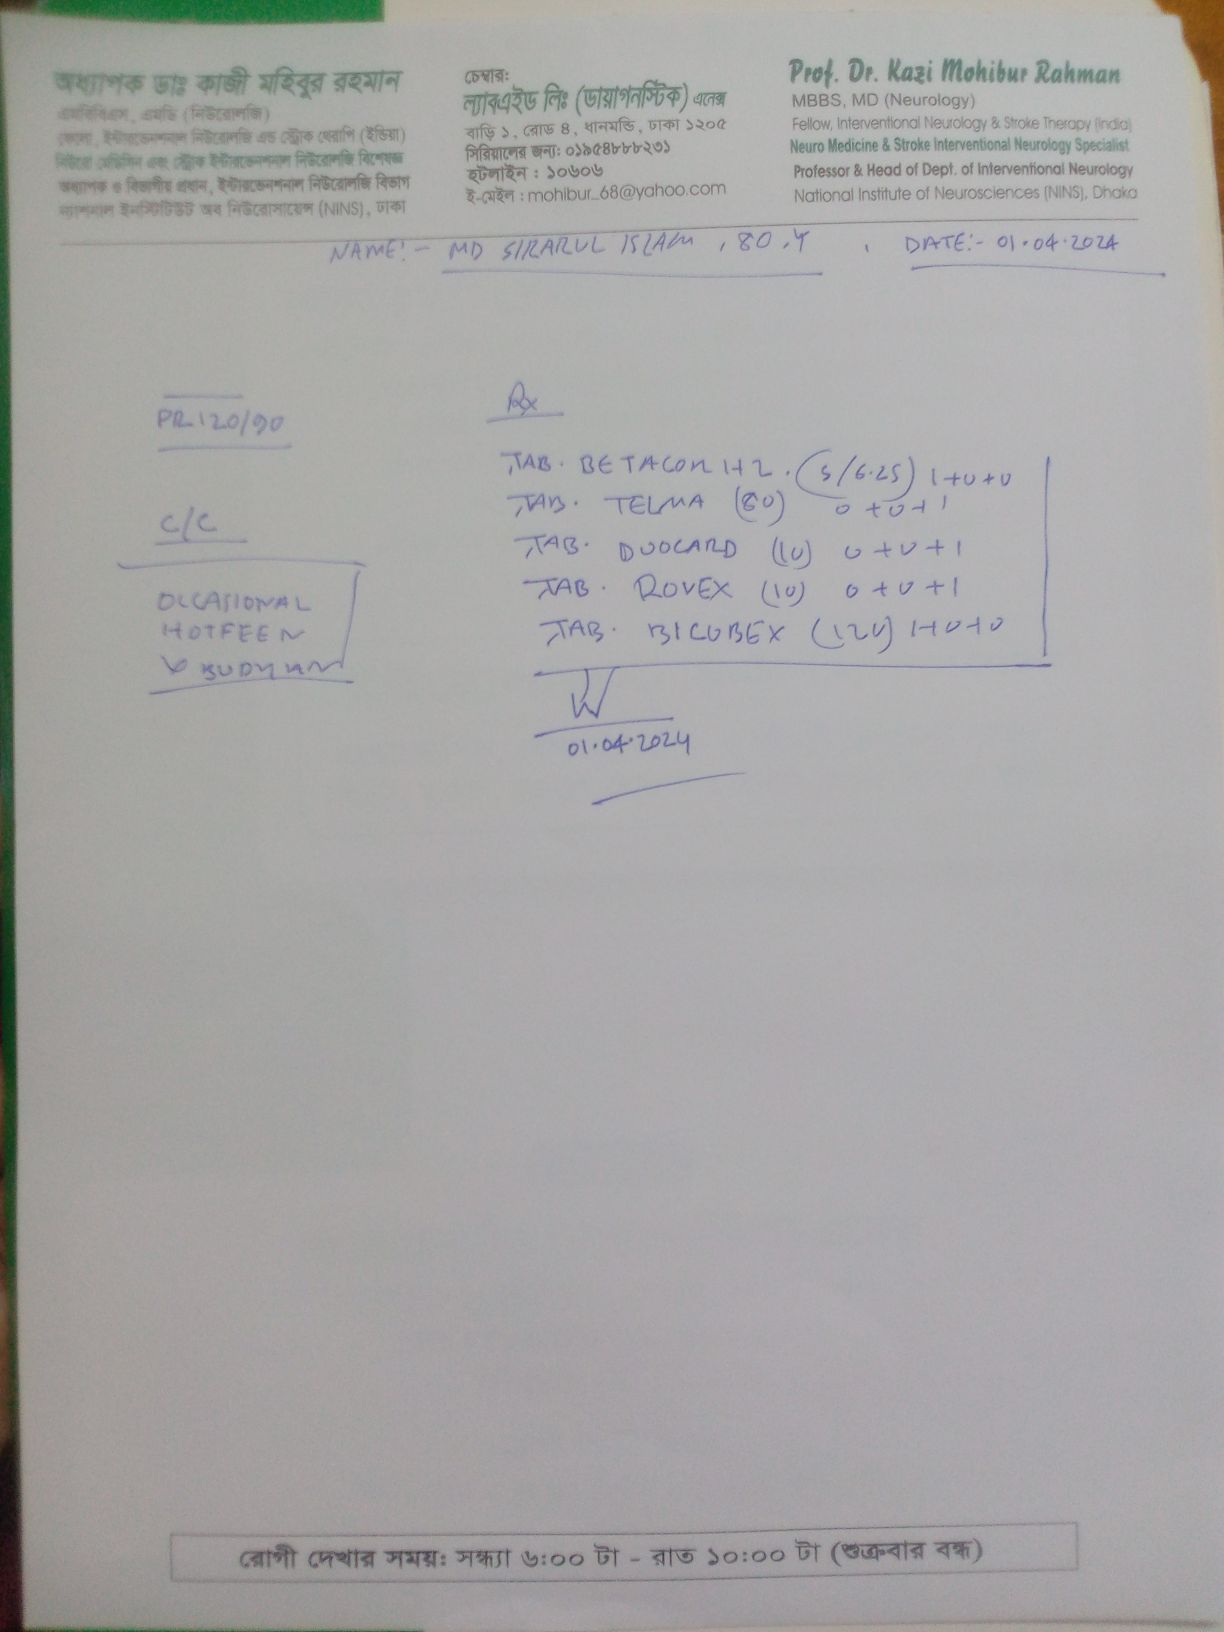 অধ্যাপক ডাঃ কাজী মহিবুর রহমান
এমবিবিএস, এমডি (নিউরোলজি)
ফেলো, ইন্টারভেনশনাল নিউরোলজি এন্ড স্ট্রোক থেরাপি (ইন্ডিয়া)
নিউরো মেডিসিন এবং স্ট্রোক ইন্টারভেনশনাল নিউরোলজি বিশেষজ্ঞ
অধ্যাপক ও বিভাগীয় প্রধান, ইন্টারভেনশনাল নিউরোলজি বিভাগ
ন্যাশনাল ইনস্টিটিউট অব নিউরোসায়েন্স (NINS), ঢাকা
চেম্বার:
ল্যাবএইড লিঃ (ডায়াগনস্টিক) এনেক্স
বাড়ি ১, রোড ৪, ধানমন্ডি, ঢাকা ১২০৫
সিরিয়ালের জন্য: ০১৯৫৪৮৮৮২৩১
হটলাইন : ১০৬০৬
ই-মেইল : mohibur_68@yahoo.com
Prof. Dr. Kazi Mohibur Rahman
MBBS, MD (Neurology)
Fellow, Interventional Neurology & Stroke Therapy (India)
Neuro Medicine & Stroke Interventional Neurology Specialist
Professor & Head of Dept. of Interventional Neurology
National Institute of Neurosciences (NINS), Dhaka
NAME:- MD SIRARUL ISLAM, 80.Y, DATE:- 01.04.2024
120/90
C/C
OCCASIONAL
Rx
TAB. BETACOR HZ. (5/6.25) 1+0+0
TAB. TELMA (80) 0+0+1
TAB. DUOCARD (10) 0+0+1
TAB. ROVEX (10) 0+0+1
TAB. BICOBEX (120) 1+0+0
01.04.2024
রোগী দেখার সময়: সন্ধ্যা ৬:০০ টা - রাত ১০:০০ টা (শুক্রবার বন্ধ)